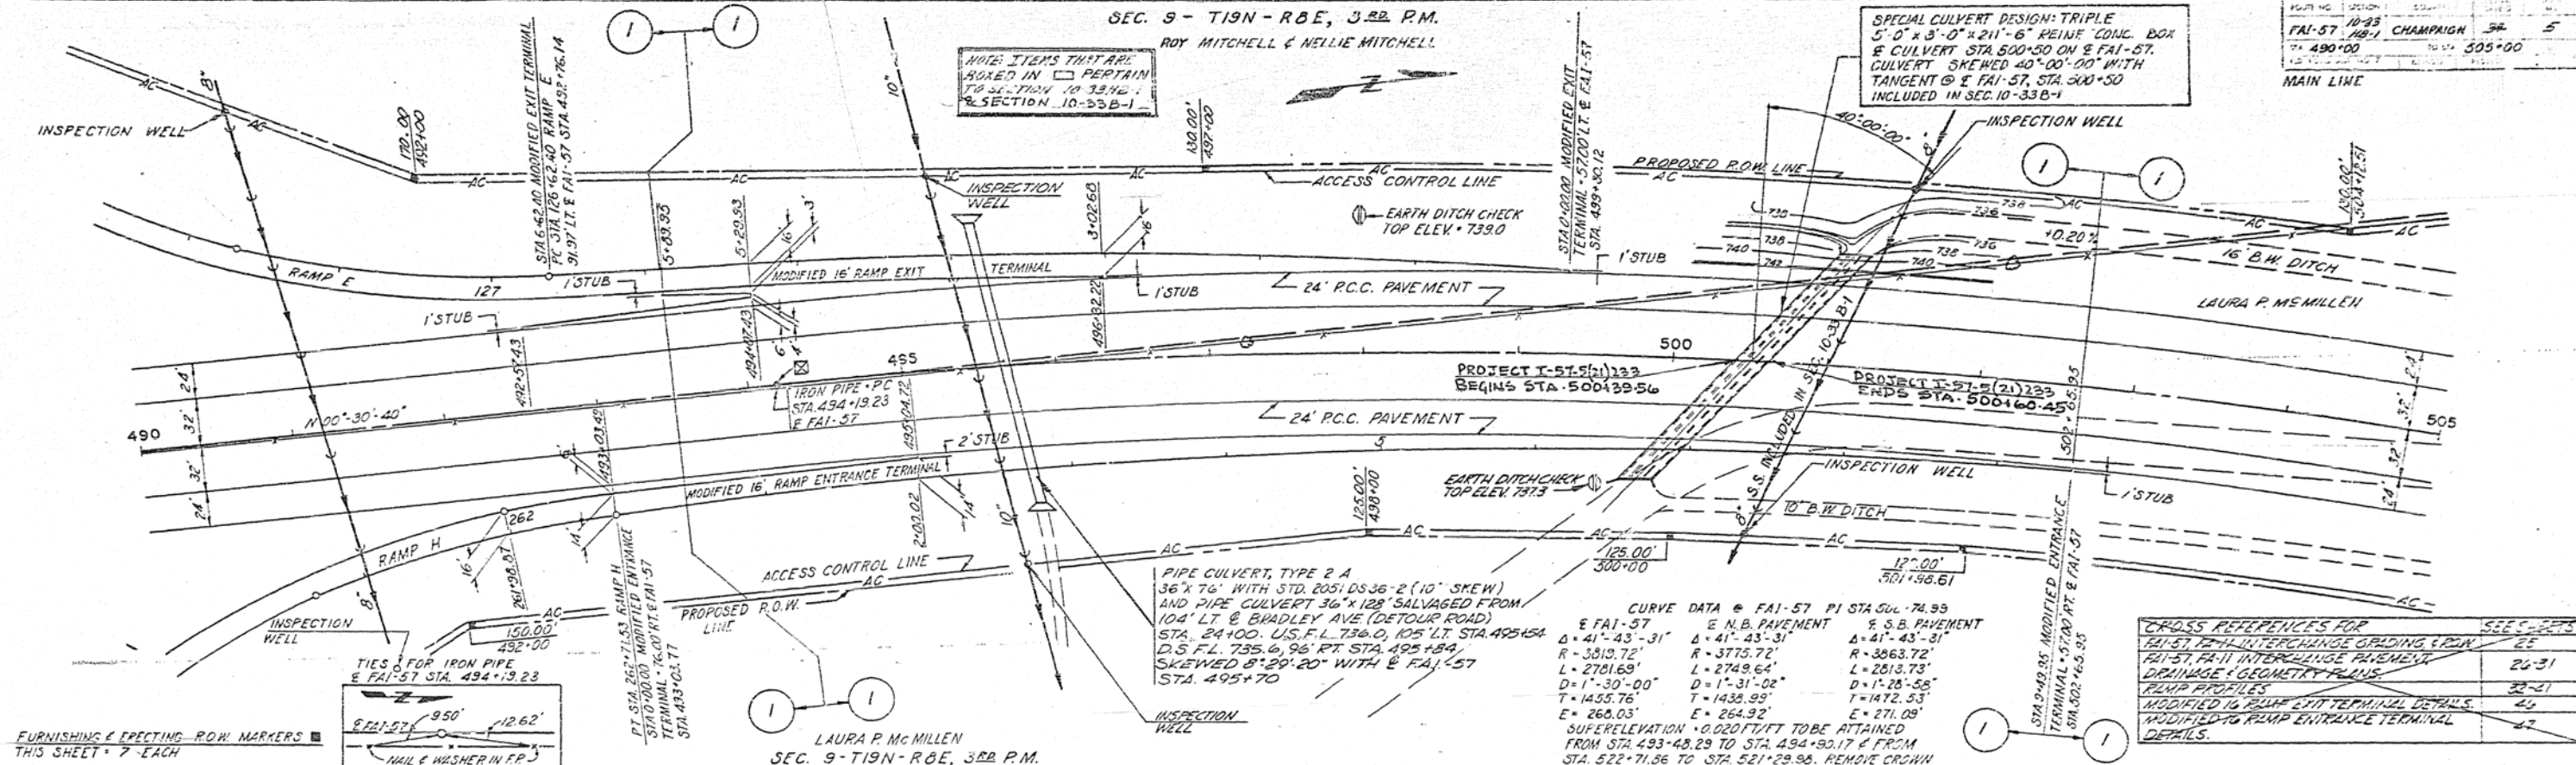 SEC. 9 - T19N - R8E, 3RD P.M.
ROY MITCHELL & NELLIE MITCHELL
NOTE: ITEMS THAT ARE
BOXED IN ▭ PERTAIN
TO SECTION 10-33HB-1
& SECTION 10-33B-1
SPECIAL CULVERT DESIGN: TRIPLE
5'-0" x 3'-0" x 211'-6" REINF. CONC. BOX
℄ CULVERT STA. 500+50 ON ℄ FAI-57.
CULVERT SKEWED 40°-00'-00" WITH
TANGENT @ ℄ FAI-57, STA. 500+50
INCLUDED IN SEC. 10-33B-1
FAI-57
10-33
HB-1
CHAMPAIGN
5
490+00
TO STA. 505+00
MAIN LINE
1
1
AC
8"
INSPECTION WELL
AC
170.00'
492+00
STA 6+62.40 MODIFIED EXIT TERMINAL
PC STA. 126+62.40 RAMP E
91.97' LT. ℄ FAI-57 STA. 492+76.14
AC
AC
10"
INSPECTION
WELL
AC
130.00'
497+00
AC
ACCESS CONTROL LINE
EARTH DITCH CHECK
TOP ELEV. = 739.0
STA 0+00.00 MODIFIED EXIT
TERMINAL = 57.00' LT. ℄ FAI-57
STA. 499+30.12
PROPOSED R.O.W. LINE
AC
40°-00'-00"
8"
INSPECTION WELL
1
1
130.00'
504+12.51
AC
AC
AC
738
738
740
742
738
736
736
738
740
+0.20%
16' B.W. DITCH
LAURA P. McMILLEN
RAMP E
127
1' STUB
1' STUB
5+89.93
5+29.93
16'
3'
MODIFIED 16' RAMP EXIT
TERMINAL
3+02.68
16'
1' STUB
24' P.C.C. PAVEMENT
1' STUB
492+57.43
494+07.43
6'
4'
IRON PIPE = PC
STA. 494+19.23
℄ FAI-57
495
495+04.72
496+32.22
500
PROJECT I-57-5(21)233
BEGINS STA. 500+39.56
PROJECT I-57-5(21)233
ENDS STA. 500+60.45
502+65.95
24'
32'
32'
24'
505
490
24'
32'
32'
24'
N 00°-30'-40"
24' P.C.C. PAVEMENT
5
493+03.49
2' STUB
MODIFIED 16' RAMP ENTRANCE TERMINAL
2+00.02
14'
10"
S.S. INCLUDED IN SEC. 10-33 B-1
8"
INSPECTION WELL
EARTH DITCH CHECK
TOP ELEV. 737.3
10' B.W. DITCH
1' STUB
262
RAMP H
16'
14'
261+98.87
8"
INSPECTION
WELL
150.00'
492+00
AC
PT STA. 262+71.53 RAMP H
STA 0+00.00 MODIFIED ENTRANCE
TERMINAL = 76.00' RT. ℄ FAI-57
STA. 493+03.77
ACCESS CONTROL LINE
AC
PROPOSED R.O.W.
LINE
AC
125.00'
498+00
AC
AC
125.00'
500+00
AC
501+98.61
AC
PIPE CULVERT, TYPE 2 A
36" x 76' WITH STD. 2051 DS36-2 (10° SKEW)
AND PIPE CULVERT 36" x 128' SALVAGED FROM
104' LT. ℄ BRADLEY AVE. (DETOUR ROAD)
STA. 24+00. U.S.F.L. 736.0, 105' LT. STA. 495+54
D.S.F.L. 735.6, 96' RT. STA. 495+84,
SKEWED 8°-29'-20" WITH ℄ FAI-57
STA. 495+70
INSPECTION
WELL
TIES FOR IRON PIPE
℄ FAI-57 STA. 494+19.23
℄ FAI-57
9.50'
12.62'
NAIL & WASHER IN F.P.
FURNISHING & ERECTING R.O.W. MARKERS
THIS SHEET = 7 EACH
1
1
LAURA P. McMILLEN
SEC. 9 - T19N - R8E, 3RD P.M.
CURVE DATA @ FAI-57 PI STA
℄ FAI-57
Δ = 41°-43'-31"
R = 3819.72'
L = 2781.69'
D = 1°-30'-00"
T = 1455.76'
E = 268.03'
℄ N.B. PAVEMENT
Δ = 41°-43'-31"
R = 3775.72'
L = 2749.64'
D = 1°-31'-02"
T = 1438.99'
E = 264.92'
℄ S.B. PAVEMENT
Δ = 41°-43'-31"
R = 3863.72'
L = 2813.73'
D = 1°-28'-58"
T = 1472.53'
E = 271.09'
SUPERELEVATION = 0.020 FT/FT TO BE ATTAINED
FROM STA. 493+48.29 TO STA. 494+90.17 & FROM
STA. 522+71.86 TO STA. 521+29.98. REMOVE CROWN
STA 9+49.95 MODIFIED ENTRANCE
TERMINAL = 57.00' RT. ℄ FAI-57
STA. 502+65.95
1
1
CROSS REFERENCES FOR
SEE SHEETS
FAI-57, FA-11 INTERCHANGE GRADING & R.O.W.
25
FAI-57, FA-11 INTERCHANGE PAVEMENT,
DRAINAGE & GEOMETRY PLANS.
26-31
RAMP PROFILES
32-41
MODIFIED 16' RAMP EXIT TERMINAL DETAILS.
46
MODIFIED 16' RAMP ENTRANCE TERMINAL
DETAILS.
47